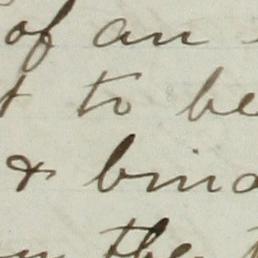 of an
to be
& bind
the